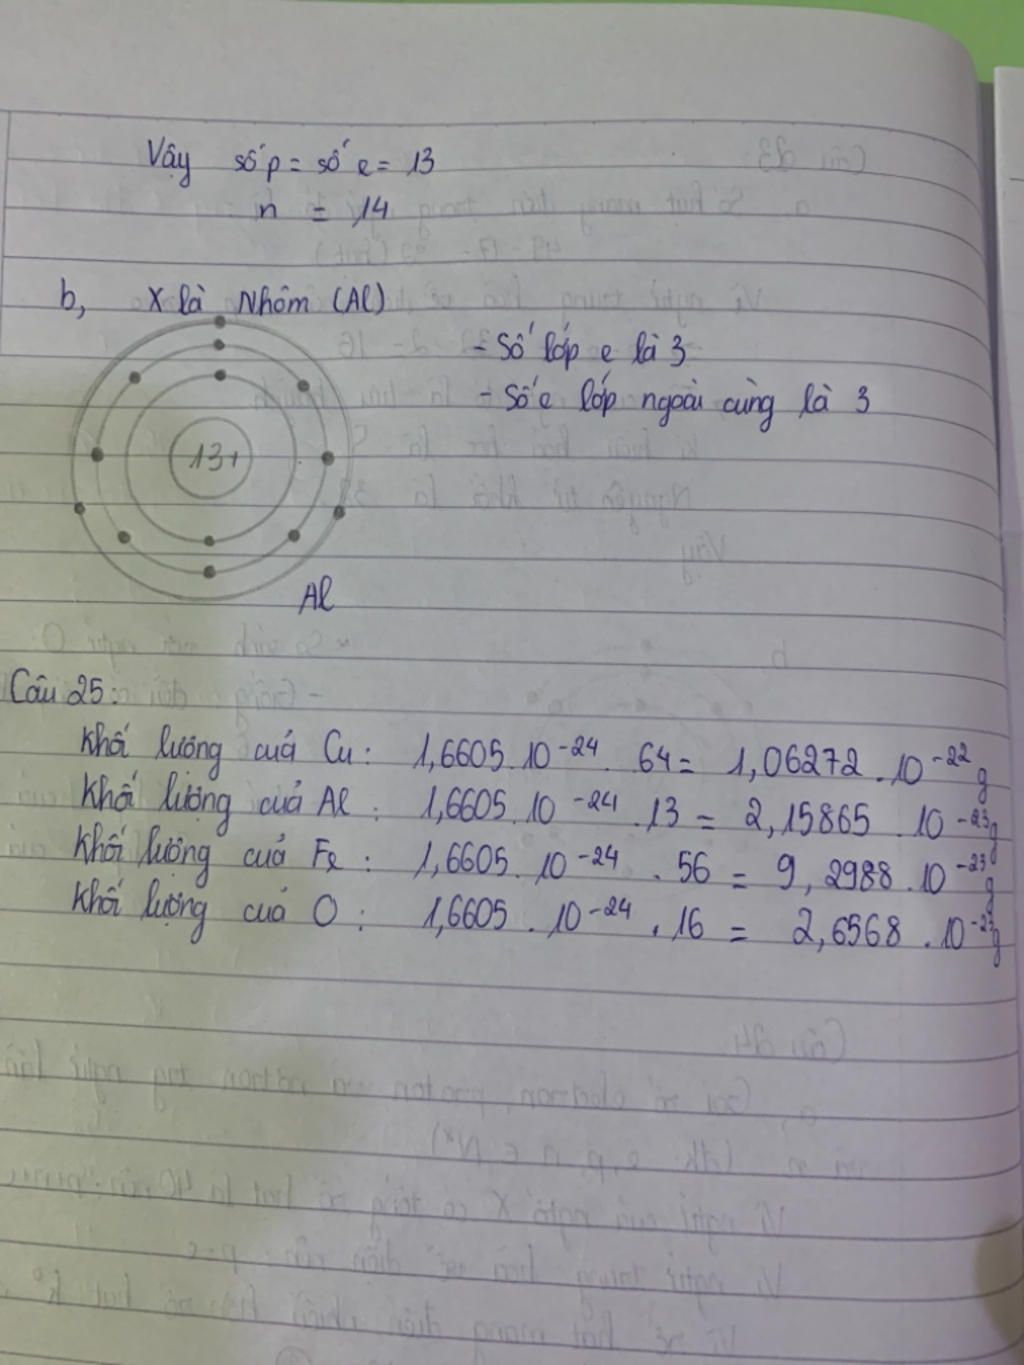 Vậy số p = số e = 13
n = 14
b, X là Nhôm (Al)
- Số lớp e là 3
- Số e lớp ngoài cùng là 3
13+
Al
Câu 25:
Khối lượng của Cu : 1,6605 . 10⁻²⁴ . 64 = 1,06272 . 10⁻²² g
Khối lượng của Al : 1,6605 . 10⁻²⁴ . 13 = 2,15865 . 10⁻²³ g
Khối lượng của Fe : 1,6605 . 10⁻²⁴ . 56 = 9,2988 . 10⁻²³ g
Khối lượng của O : 1,6605 . 10⁻²⁴ . 16 = 2,6568 . 10⁻²³ g